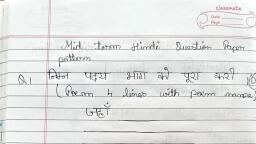 classmate
Date
Page
Mid term Hindi Question Paper
pattern
Q1 निम्न पद्य भाग को पूरा करो
(Poem 4 lines with poem name)